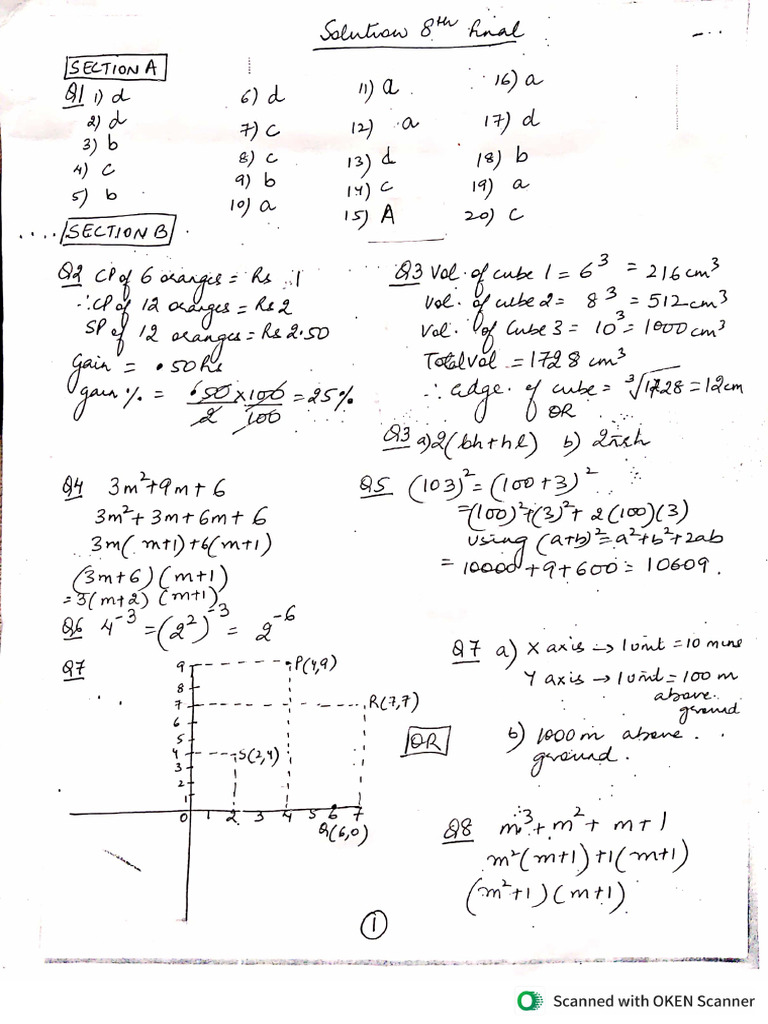 Solution 8th final
SECTION A
Q1 1) d
2) d
3) b
4) c
5) b
6) d
7) c
8) c
9) b
10) a
11) a
12) a
13) d
14) c
15) A
16) a
17) d
18) b
19) a
20) c
SECTION B
Q2 CP of 6 oranges = Rs 1
∴ CP of 12 oranges = Rs 2
SP of 12 oranges = Rs 2.50
gain = .50 Rs
gain % = .50/2 × 100/100 = 25%
Q3 Vol. of cube 1 = 6³ = 216 cm³
Vol. of cube 2 = 8³ = 512 cm³
Vol. of Cube 3 = 10³ = 1000 cm³
Total vol = 1728 cm³
∴ edge of cube = ³√1728 = 12 cm
OR
Q3 a) 2(bh+hl) b) 2πrh
Q4 3m²+9m+6
3m²+3m+6m+6
3m(m+1)+6(m+1)
(3m+6)(m+1)
=3(m+2)(m+1)
Q5 (103)² = (100+3)²
=(100)²+(3)²+2(100)(3)
using (a+b)²=a²+b²+2ab
= 10000+9+600 = 10609.
Q6 4⁻³ = (2²)⁻³ = 2⁻⁶
Q7
9
8
7
6
5
4
3
2
1
P(4,9)
R(7,7)
S(2,4)
0 1 2 3 4 5 6 7
Q(6,0)
OR
Q7 a) X axis → 1 unit = 10 mins
Y axis → 1 unit = 100 m
above
ground
b) 1000 m above
ground.
Q8 m³+m²+m+1
m²(m+1)+1(m+1)
(m²+1)(m+1)
1
Scanned with OKEN Scanner